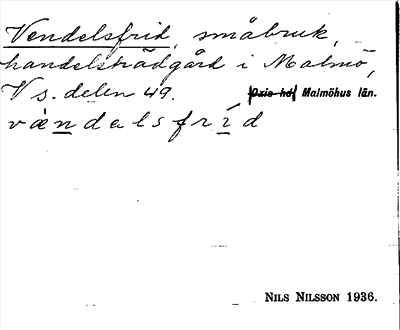 Vendelsfrid, småbruk,
handelsträdgård i Malmö,
V s. delen 49. Oxie hd, Malmöhus län.
vàndelsfríd
NILS NILSSON 1936.